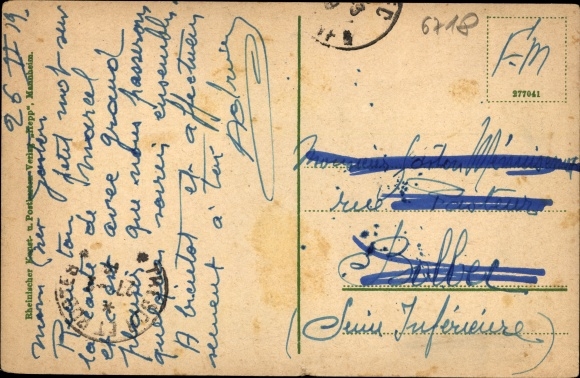 26 II 19
mon cher Gaston
Reçu ton petit mot sur
la carte de Marcel
et est avec grand
plaisir que nous passerons
quelques soirées ensemble
A bientôt et affectueu
sement à toi
Rheinischer Kunst- u. Postkarten-Verlag "Hepp", Mannheim.
6718
F.M
277041
Monsieur Gaston
rue Pasteur
Bolbec
(Seine Inférieure)